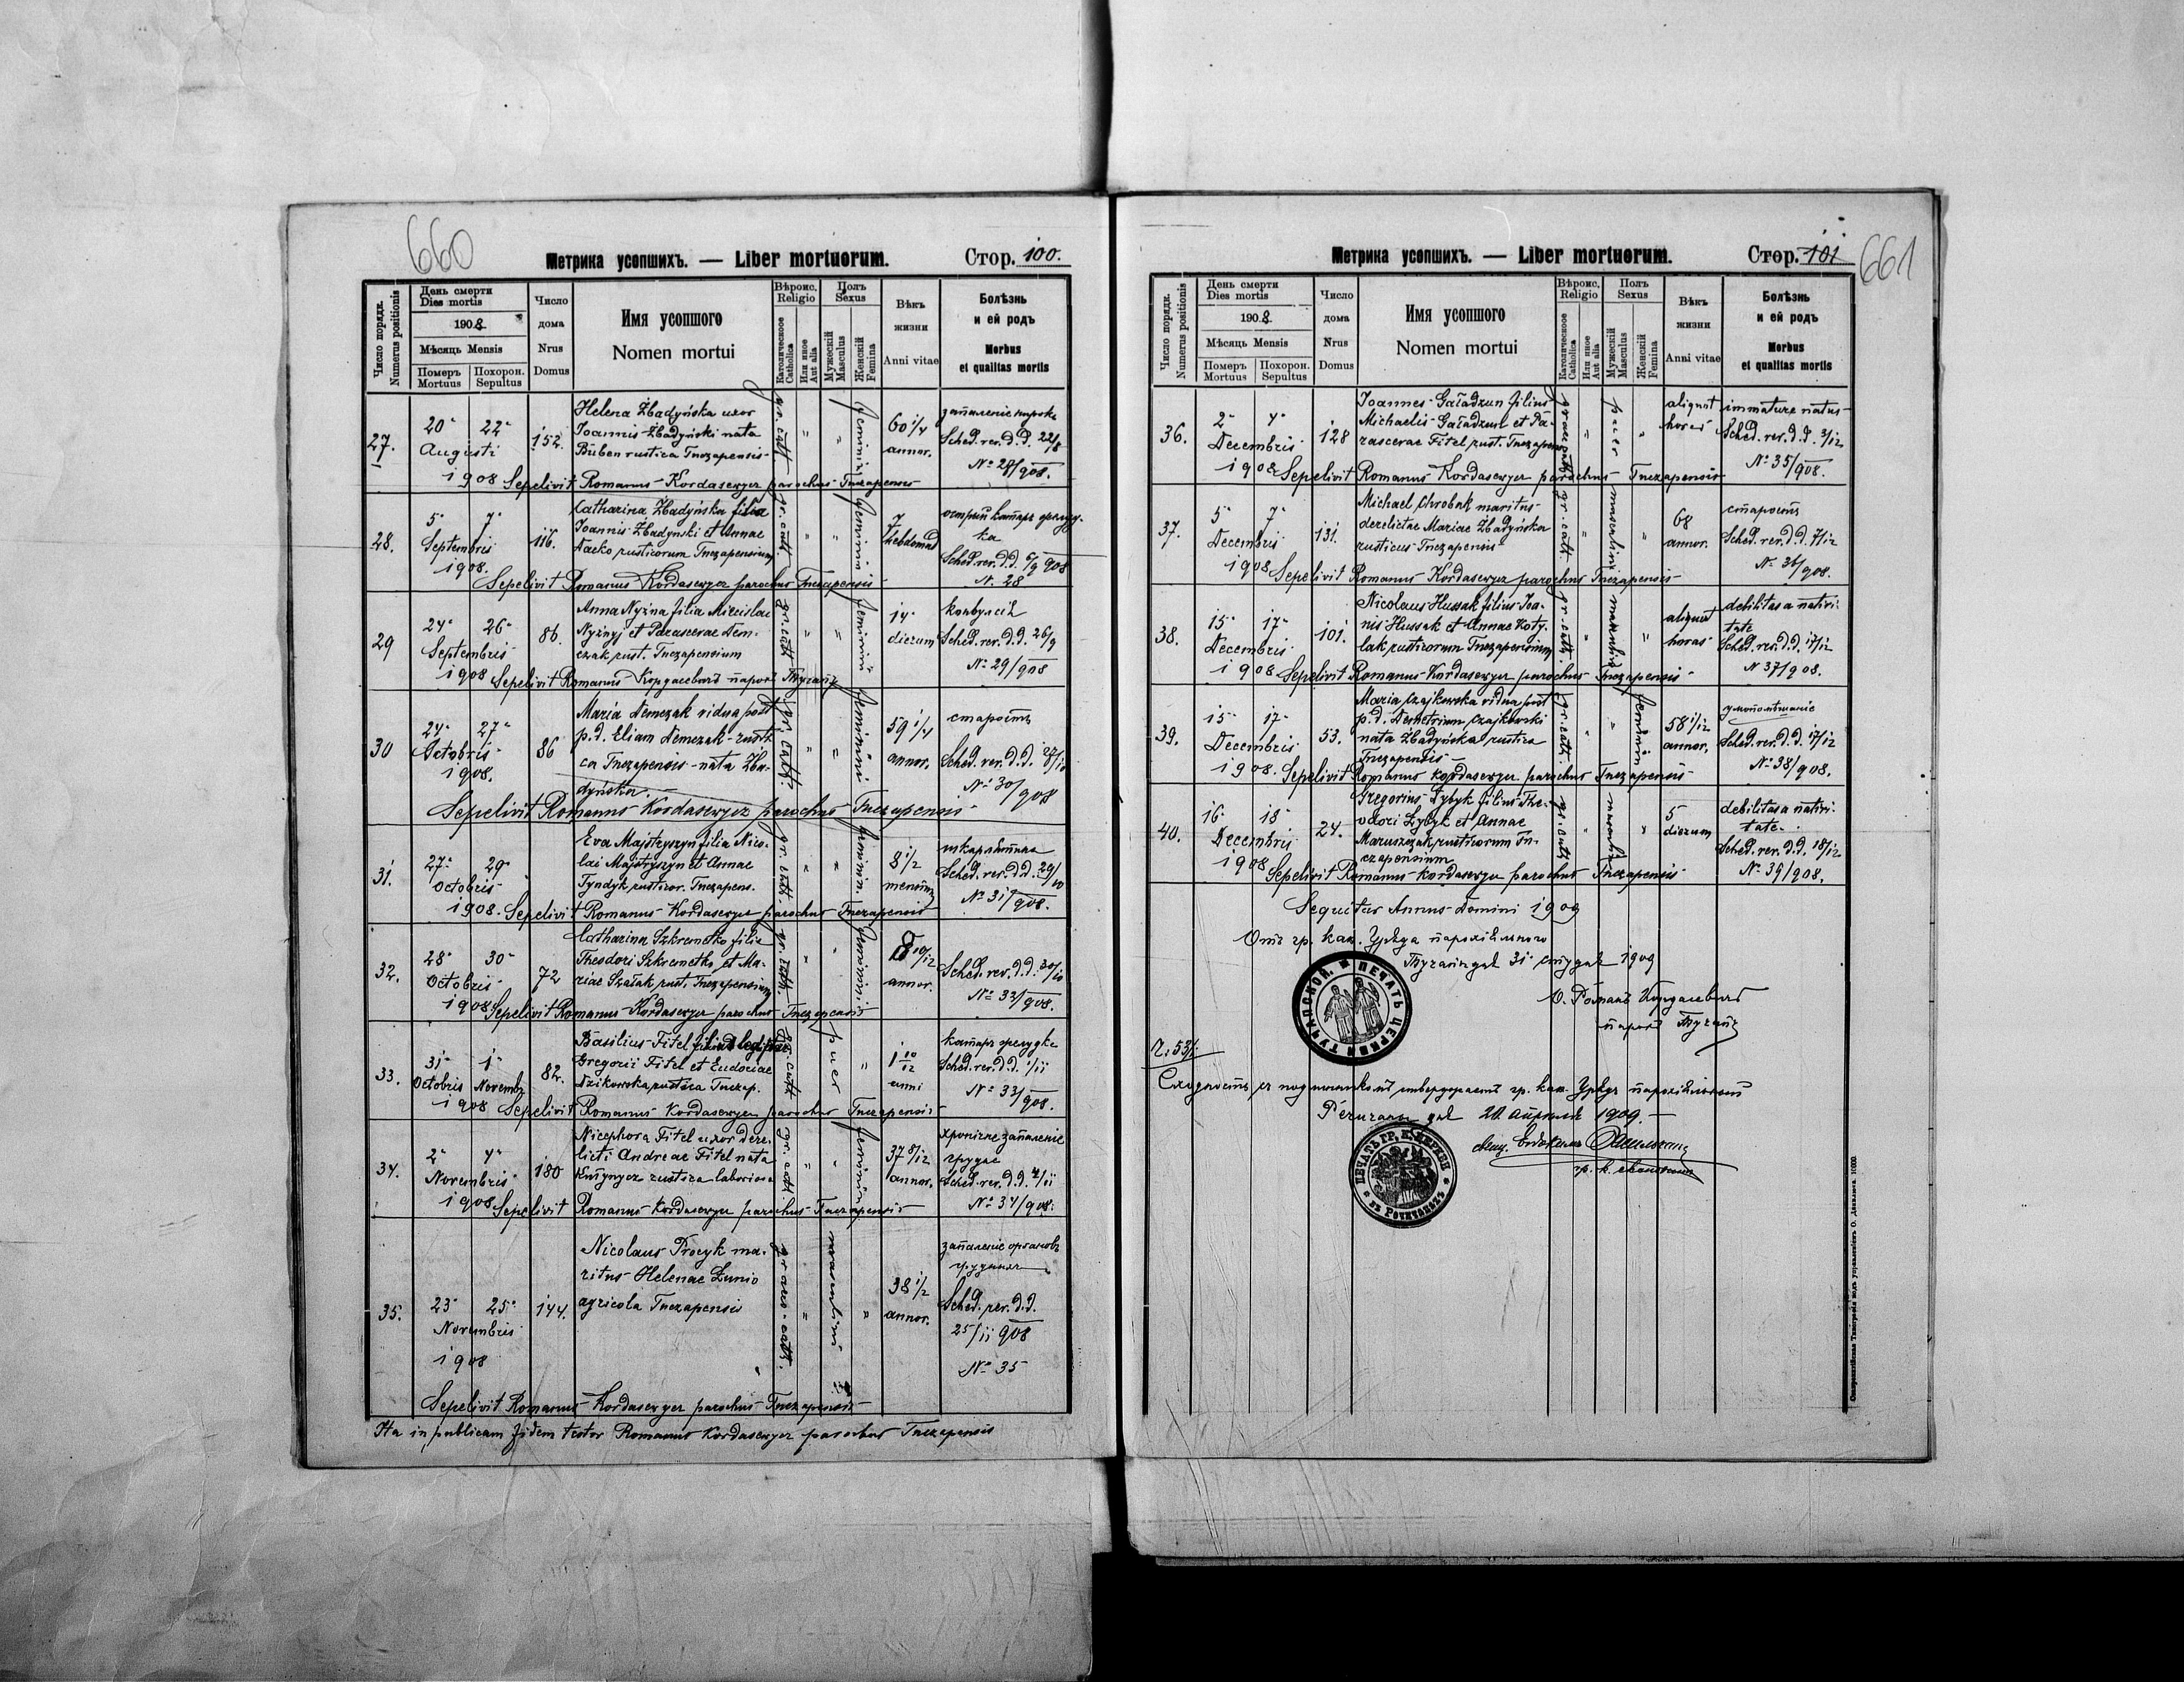 660
Метрика усопшихъ. — Liber mortuorum.
Стор. 100.
Число порядк.
Numerus positionis
День смерти
Dies mortis
1908
Мѣсяць Mensis
Померъ
Mortuus
Похорон.
Sepultus
Число
дома
Nrus
Domus
Имя усопшого
Nomen mortui
Вѣроис.
Religio
Католическоое
Catholica
Или иное
Aut alia
Полъ
Sexus
Мужескій
Masculus
Женскій
Femina
Вѣкъ
жизни
Anni vitae
Болѣзнь
и ей родъ
Morbus
et qualitas mortis
27.
20 22
Augusti
1908
152.
Helena Żbadyńska uxor
Joannis Żbadyński nata
Büben rustica Tuczapensis
gr. cath.
feminini
60 1/4
annor.
Sched. rev. d. d. 22/8
No 28/908.
Sepelivit Romanus Kordasewycz parochus Tuczapensis
28.
5 7
Septembris
1908.
116.
Catharina Żbadyńska filia
Joannis Żbadyński et Annae
rusticorum Tuczapensium
gr. cath.
feminini
7
hebdomad
Sched. rev. d. d. 6/9 908
N. 28
Sepelivit Romanus Kordasewycz parochus Tuczapensis
29
24 26
Septembris
1908
86.
Anna Nyżna filia Miecislai
Nyżnyj et Parascevae Dem-
czak rust. Tuczapensium
gr. cath.
feminini
14
dierum
конвулсіѣ
Sched. rev. d. d. 26/9
No 29/908
Sepelivit Romanus Кордасевичъ парох Тучапъ
30
24 27
Octobris
1908.
86
Maria Demczak vidua post
p. d. Eliam Demczak rusti-
ca Tuczapensis nata Żba-
dyńska.
gr. cath.
feminini
59 1/4
annor.
старость
Sched. rev. d. d. 27/10
No 30/908
Sepelivit Romanus Kordasewycz parochus Tuczapensis
31.
27. 29
Octobris
1908.
Eva Majstryszyn filia Nico-
lai Majstryszyn et Annae
Tyndyk rusticor. Tuczapens.
gr. cath.
feminin.
8 1/2
mensium
шкарлятина
Sched. rev. d. d. 29/10
No 31/908.
Sepelivit Romanus Kordasewycz parochus Tuczapensis
32.
28 30
Octobris
1908
72
Catharina Szkremetko filia
Theodori Szkremetko et Ma-
riae Szałak rust. Tuczapensium
gr. cath.
feminini
8 10/12
annor.
Sched. rev. d. d. 30/10
No 33/908.
Sepelivit Romanus Kordasewycz parochus Tuczapensis
33.
31 1
Octobris Novemb.
1908
82.
Basilius Fitel
Gregorii Fitel et Eudociae
Dzikowska rustica Tuczap.
gr. cath
puer
1 10/12
anni
катаръ
Sched. rev. d. d. 1/11
No 33/908.
Sepelivit Romanus Kordasewycz parochus Tuczapensis
34.
2 4
Novembris
1908
180
Nicephora Fitel uxor dere-
licti Andreae Fitel nata
rustica laboriosa
gr. cath
feminini
37 8/12
annor.
хронічне запаленіе
Sched. rev. d. d. 4/11
No 34/908.
Sepelivit Romanus Kordasewycz parochus Tuczapensis
35.
23 25
Novembris
1908
144.
Nicolaus Procyk ma-
ritus Helenae Łunio
agricola Tuczapensis
graeco-cath.
masculini
38 1/2
annor.
запаленіе органовъ
Sched. rev. d. d.
25/11 908
No 35
Sepelivit Romanus Kordasewycz parochus Tuczapensis
Ita in publicam fidem testor Romanus Kordasewycz parochus Tuczapensis
661
Метрика усопшихъ. — Liber mortuorum.
Стор. 101
Число порядк.
Numerus positionis
День смерти
Dies mortis
1908.
Мѣсяць Mensis
Померъ
Mortuus
Похорон.
Sepultus
Число
дома
Nrus
Domus
Имя усопшого
Nomen mortui
Вѣроис.
Religio
Католическоое
Catholica
Или иное
Aut alia
Полъ
Sexus
Мужескій
Masculus
Женскій
Femina
Вѣкъ
жизни
Anni vitae
Болѣзнь
и ей родъ
Morbus
et qualitas mortis
36.
2 4
Decembris
1908
128
Joannes Gaładzun filius
Michaelis Gaładzun et Pa-
rascevae Fitel rust. Tuczapens
graeco cath.
puer
aliquot
horas
immature natus
Sched. rev. d. d. 3/12
No 35/908.
Sepelivit Romanus Kordasewycz parochus Tuczapensis
37.
5 7
Decembris
1908
131.
Michael Chrobak maritus
derelictae Mariae Żbadyńska
rusticus Tuczapensis
gr. cath.
masculini
68
annor.
старость
Sched. rev. d. d. 7/12
No 36/908.
Sepelivit Romanus Kordasewycz parochus Tuczapensis
38.
15 17
Decembris
1908
101.
Nicolaus Hussak filius Joa-
nis Hussak et Annae Koty-
lak rusticorum Tuczapensium
gr. cath.
masculini
aliquot
horas
debilitas a nativi-
tate
Sched. rev. d. d. 17/12
N 37/908.
Sepelivit Romanus Kordasewycz parochus Tuczapensis
39.
15 17
Decembris
1908.
53.
Maria Czajkowska vidua post
p. d. Demetrium Czajkowski
nata Żbadyńska rustica
Tuczapensis
gr. cath.
feminin
58 1/12
annor.
Sched. rev. d. d. 17/12
No 38/908.
Sepelivit Romanus Kordasewycz parochus Tuczapensis
40.
16 18
Decembris
1908
24.
Gregorius Dybyk filius The-
odori Dybyk et Annae
Maruszczak rusticorum Tu-
czapensium
gr. cath
masculini
5
dierum
debilitas a nativi-
tate.
Sched. rev. d. d. 18/12
No 39/908.
Sepelivit Romanus Kordasewycz parochus Tuczapensis
Sequitur Annus Domini 1909
Отъ гр. кат. Уряда парохіяльного
31 1909
О. Романъ Кордасевичъ
парох Тучапъ
ПЕЧАТЬ ЦЕРКВИ ТУЧАПСКОЙ.
Ч. 53/
гр. кат. Урядъ
20 1909.
ПЕЧАТЬ ГР. К. ЦЕРКВИ въ Рѣчичанахъ